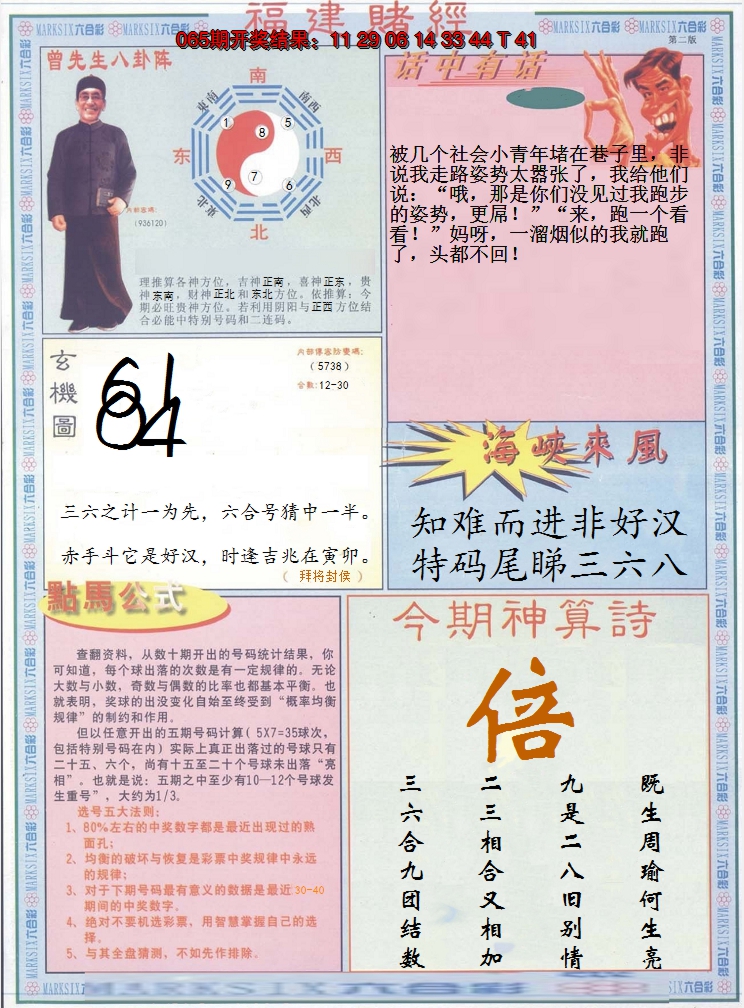 福建賭經
065期开奖结果：11 29 06 14 33 44 T 41
MARKSIX六合彩
第二版
曾先生八卦阵
南
東南
南西
1
8
5
东
西
9
7
6
東北
北西
北
內部密碼：
（936120）
理推算各神方位，吉神正南，喜神正东，贵
神东南，财神正北和东北方位。依推算：今
期必旺贵神方位。若利用阴阳与正西方位结
合必能中特别号码和二连码。
话中有话
被几个社会小青年堵在巷子里，非
说我走路姿势太嚣张了，我给他们
说：“哦，那是你们没见过我跑步
的姿势，更屌！”“来，跑一个看
看！”妈呀，一溜烟似的我就跑
了，头都不回！
玄機圖
61
04
（5738）
合数:12-30
三六之计一为先，六合号猜中一半。
赤手斗它是好汉，时逢吉兆在寅卯。
（ 拜将封侯 ）
海峽來風
知难而进非好汉
特码尾睇三六八
點馬公式
查翻资料，从数十期开出的号码统计结果，你
可知道，每个球出落的次数是有一定规律的。无论
大数与小数，奇数与偶数的比率也都基本平衡。也
就表明，奖球的出没变化自始至终受到“概率均衡
规律”的制约和作用。
但以任意开出的五期号码计算( 5X7=35球次，
包括特别号码在内）实际上真正出落过的号球只有
二十五、六个，尚有十五至二十个号球未出落“亮
相”。也就是说：五期之中至少有10—12个号球发
生重号”，大约为1/3。
选号五大法则：
1、80%左右的中奖数字都是最近出现过的熟
面孔；
2、均衡的破坏与恢复是彩票中奖规律中永远
的规律；
3、对于下期号码最有意义的数据是最近30-40
期间的中奖数字。
4、绝对不要机选彩票，用智慧掌握自己的选
择。
5、与其全盘猜测，不如先作排除。
今期神算詩
倍
既生周瑜何生亮
九是二八旧别情
二三相合又相加
三六合九团结数